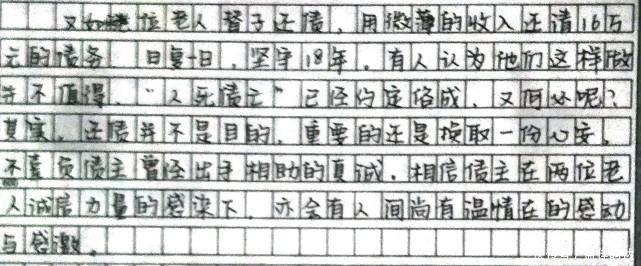 又如 位老人替子还债，用微薄的收入还清16万
元的债务 日复一日，坚守18年。有人认为他们这样做
并不值得，“人死债亡”已经约定俗成，又何必呢？
其实，还债并不是目的，重要的还是换取一份心安，
不辜负债主曾经出手相助的真诚。相信债主在两位老
人诚信力量的感染下，亦会有人间尚有温情在的感动
与感激。